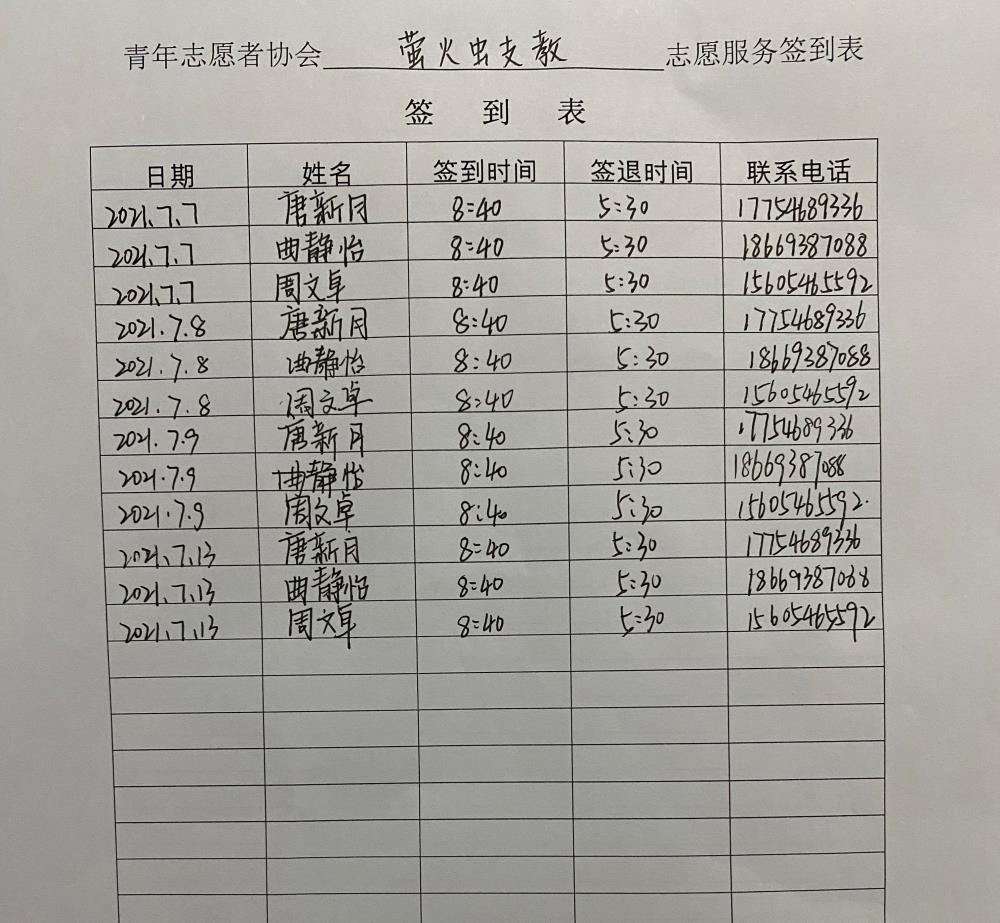 青年志愿者协会 萤火虫支教 志愿服务签到表
签 到 表
日期 姓名 签到时间 签退时间 联系电话
2021.7.7 唐新月 8:40 5:30 17754689336
2021.7.7 曲静怡 8:40 5:30 18669387088
2021.7.7 周文卓 8:40 5:30 15605465592
2021.7.8 唐新月 8:40 5:30 17754689336
2021.7.8 曲静怡 8:40 5:30 18669387088
2021.7.8 周文卓 8:40 5:30 15605465592
2021.7.9 唐新月 8:40 5:30 17754689336
2021.7.9 曲静怡 8:40 5:30 18669387088
2021.7.9 周文卓 8:40 5:30 15605465592.
2021.7.13 唐新月 8:40 5:30 17754689336
2021.7.13 曲静怡 8:40 5:30 18669387088
2021.7.13 周文卓 8:40 5:30 15605465592